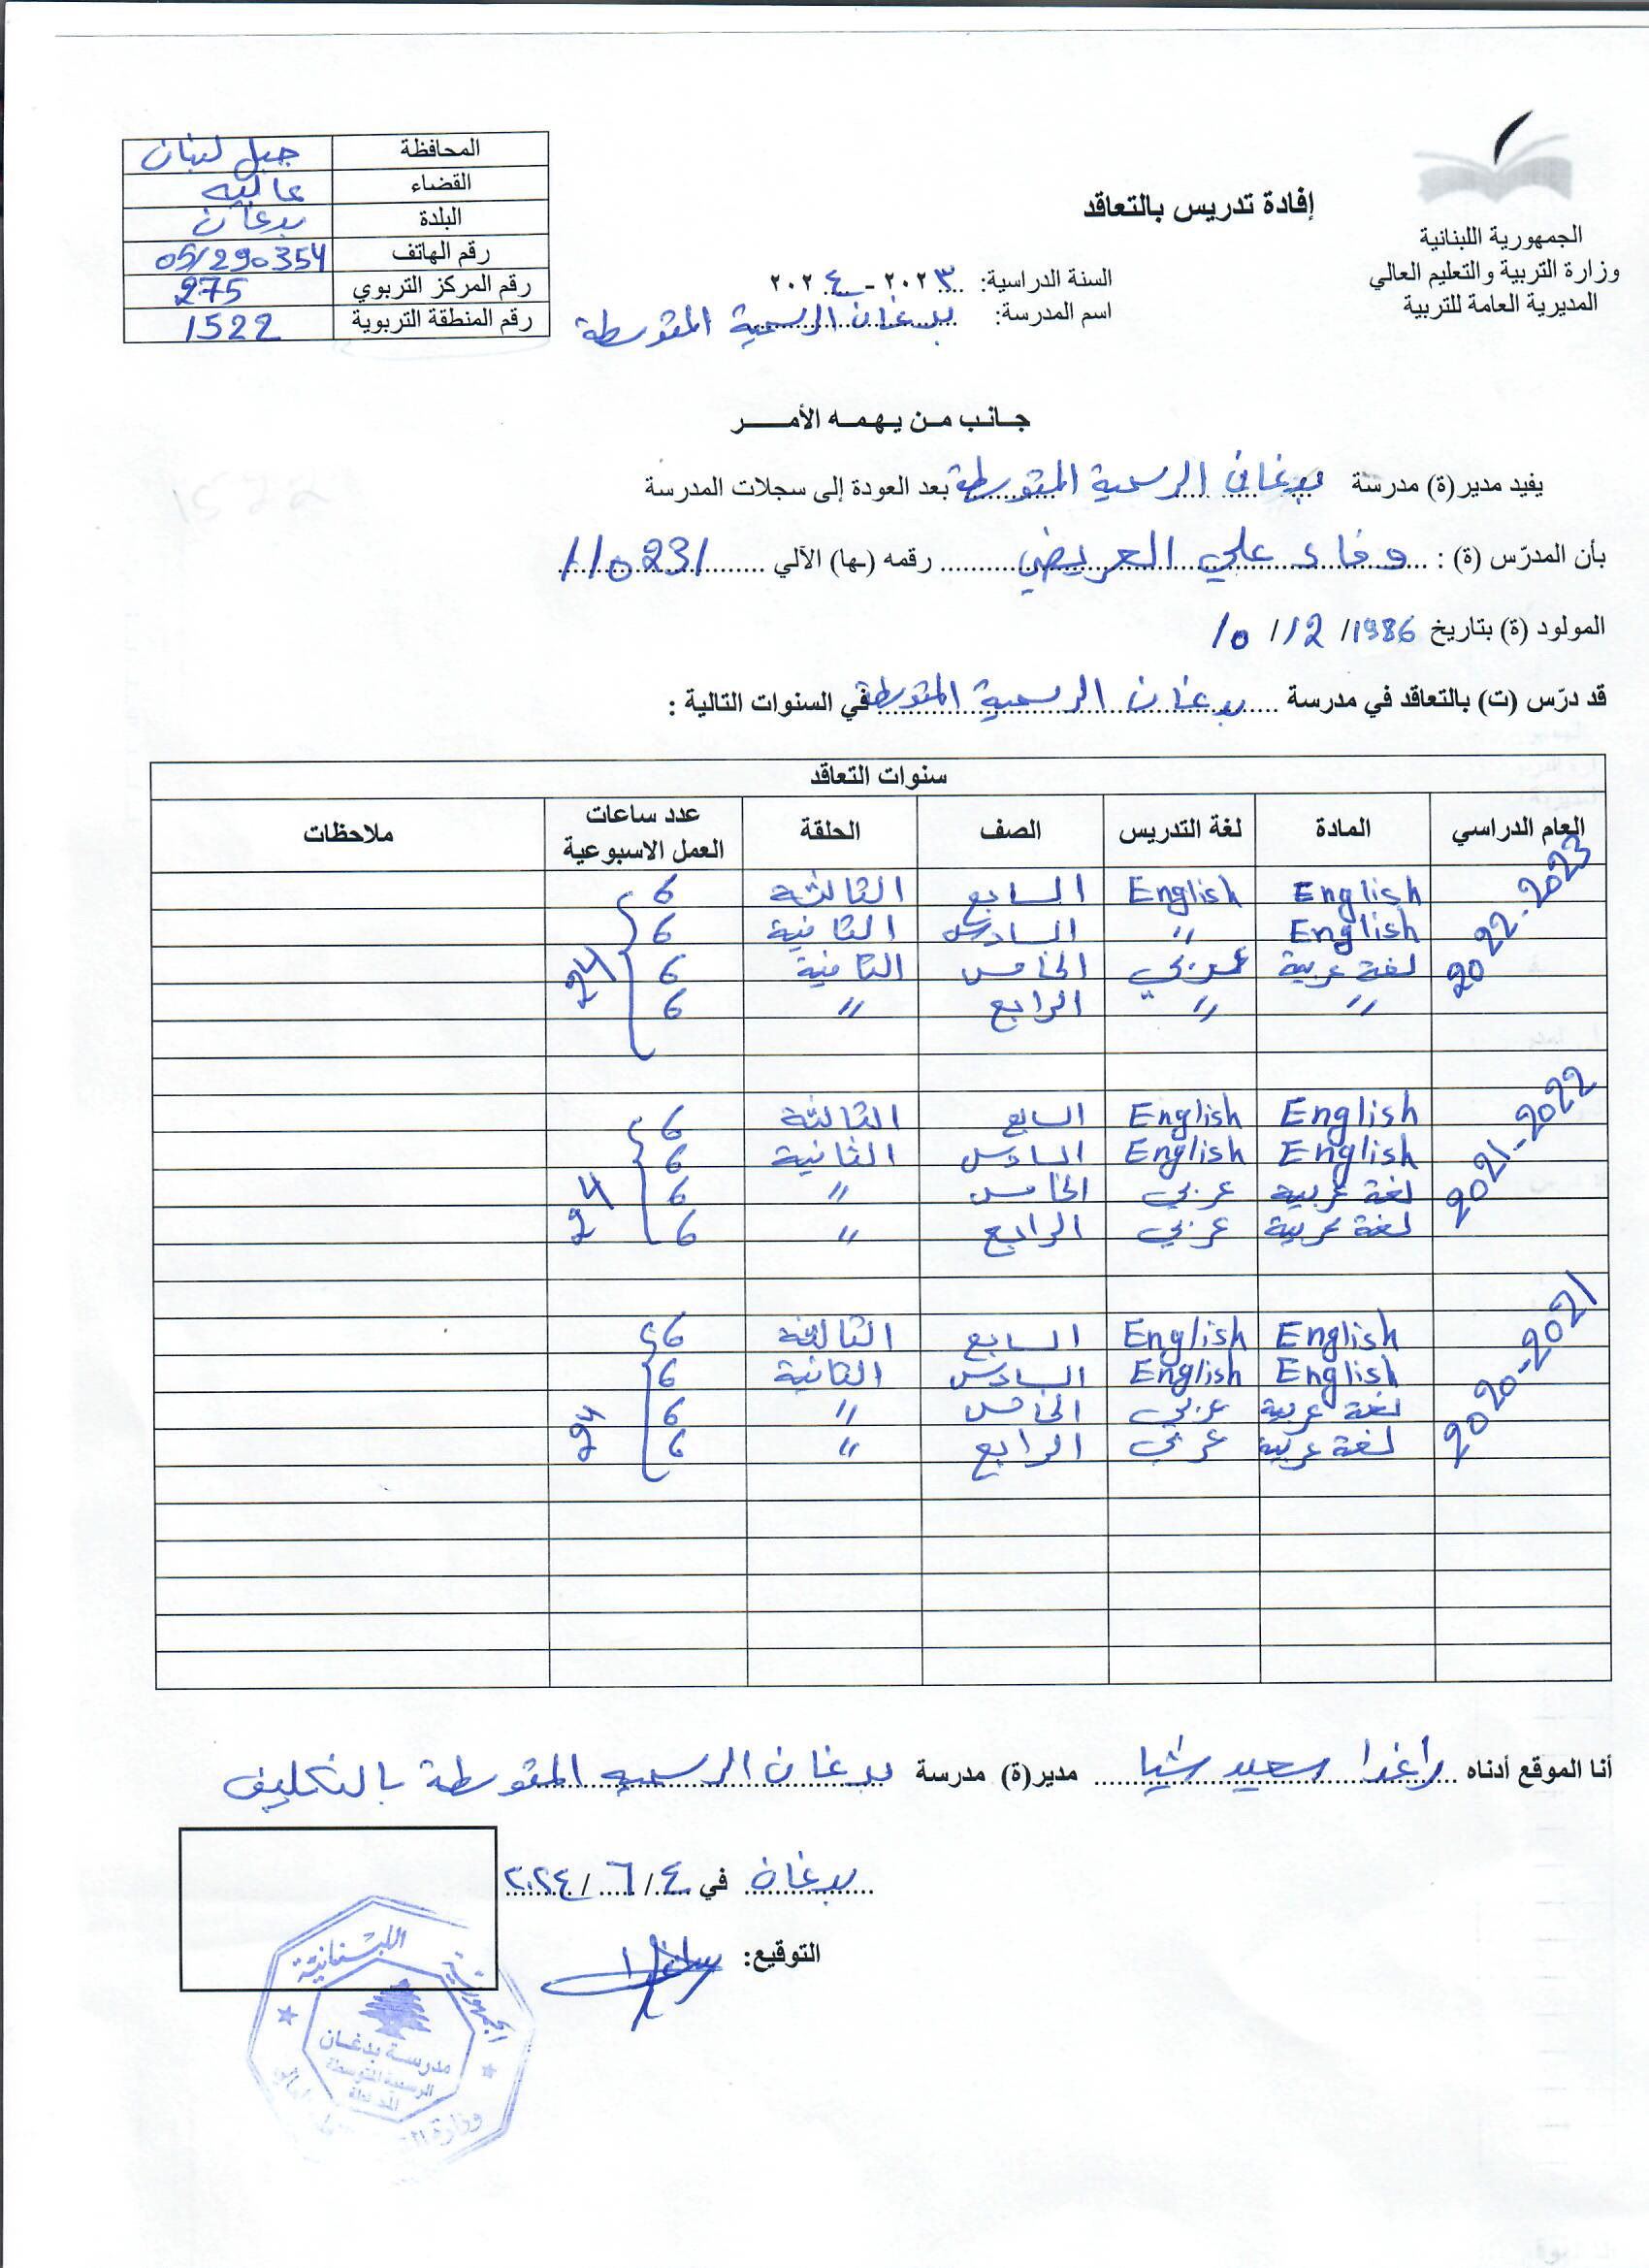 الجمهورية اللبنانية
وزارة التربية والتعليم العالي
المديرية العامة للتربية
إفادة تدريس بالتعاقد
السنة الدراسية: ٢٠٢٣ - ٢٠٢٤
اسم المدرسة: بدغان الرسمية المتوسطة
المحافظة جبل لبنان
القضاء عاليه
البلدة بدغان
رقم الهاتف 05/290354
رقم المركز التربوي 275
رقم المنطقة التربوية 1522
جانب من يهمه الأمر
يفيد مدير(ة) مدرسة بدغان الرسمية المتوسطة بعد العودة إلى سجلات المدرسة
بأن المدرّس (ة) : وفاء علي العريضي رقمه (ـها) الآلي 110231
المولود (ة) بتاريخ 10 / 12 / 1986
قد درّس (ت) بالتعاقد في مدرسة بدغان الرسمية المتوسطة في السنوات التالية :
سنوات التعاقد
العام الدراسي المادة لغة التدريس الصف الحلقة عدد ساعات العمل الاسبوعية ملاحظات
2022-2023
English English السابع الثالثة 6
English " السادس الثانية 6
لغة عربية عربي الخامس الثانية 6
" " الرابع " 6
24
2021-2022
English English السابع الثالثة 6
English English السادس الثانية 6
لغة عربية عربي الخامس " 6
لغة عربية عربي الرابع " 6
24
2020-2021
English English السابع الثالثة 6
English English السادس الثانية 6
لغة عربية عربي الخامس " 6
لغة عربية عربي الرابع " 6
24
أنا الموقع أدناه راغدا سعيد شيا مدير(ة) مدرسة بدغان الرسميه المتوسطة بالتكليف
بدغان في ٤ / ٦ / ٢٠٢٤
التوقيع:
الجمهورية اللبنانية
مدرسة بدغان
الرسمية المتوسطة